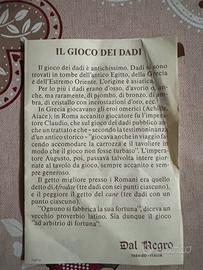 IL GIOCO DEI DADI
Il gioco dei dadi è antichissimo. Dadi si sono
trovati in tombe dell'antico Egitto, della Grecia
e dell'Estremo Oriente. L'origine è asiatica.
Per lo più i dadi erano d'osso, d'avorio o, an-
che, ma raramente, di piombo, di bronzo, di am-
bra, di cristallo con incrostazioni d'oro, ecc.
In Grecia giocavano gli eroi omerici (Achille,
Aiace), in Roma accanito giocatore fu l'impera-
tore Claudio, che sul gioco dei dadi pubblicò an-
che un trattato e che - secondo la testimonianza
d'un antico storico - "giocava anche in viaggio
facendo accomodare la carrozza e il tavoliere in
modo che il gioco non fosse turbato". L'impera-
tore Augusto, poi, passava talvolta intere gior-
nate al gioco, sempre accanito e sem-
pre generoso.
Il getto migliore presso i Romani era quello
detto di (tre dadi con sei punti ciascuno),
e il peggiore il getto del cane (tre dadi con un
punto ciascuno).
"Ognuno si fabbrica la sua fortuna", diceva un
vecchio proverbio latino. Sia dunque il gioco
"ad arbitrio di fortuna".
Dal Negro
TREVISO-ITALIA